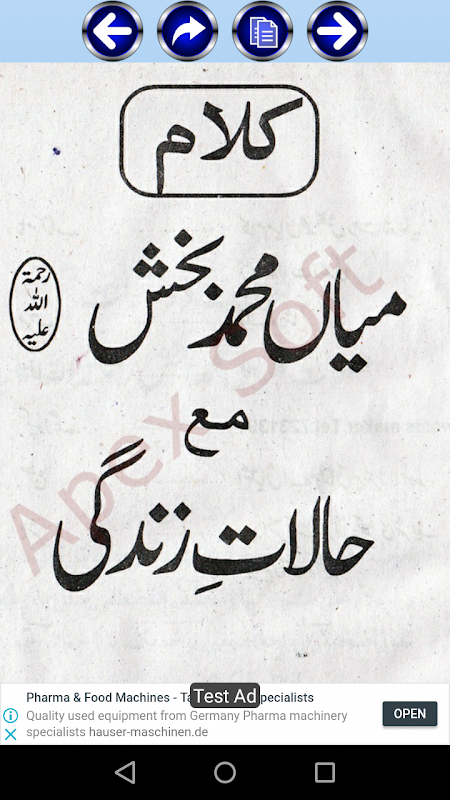 کلام
میاں محمد بخش
رحمۃ
اللہ
علیہ
مع
حالاتِ زندگی
Apex Soft
Test Ad
Pharma & Food Machines - Ta pecialists
Quality used equipment from Germany Pharma machinery
specialists hauser-maschinen.de
OPEN